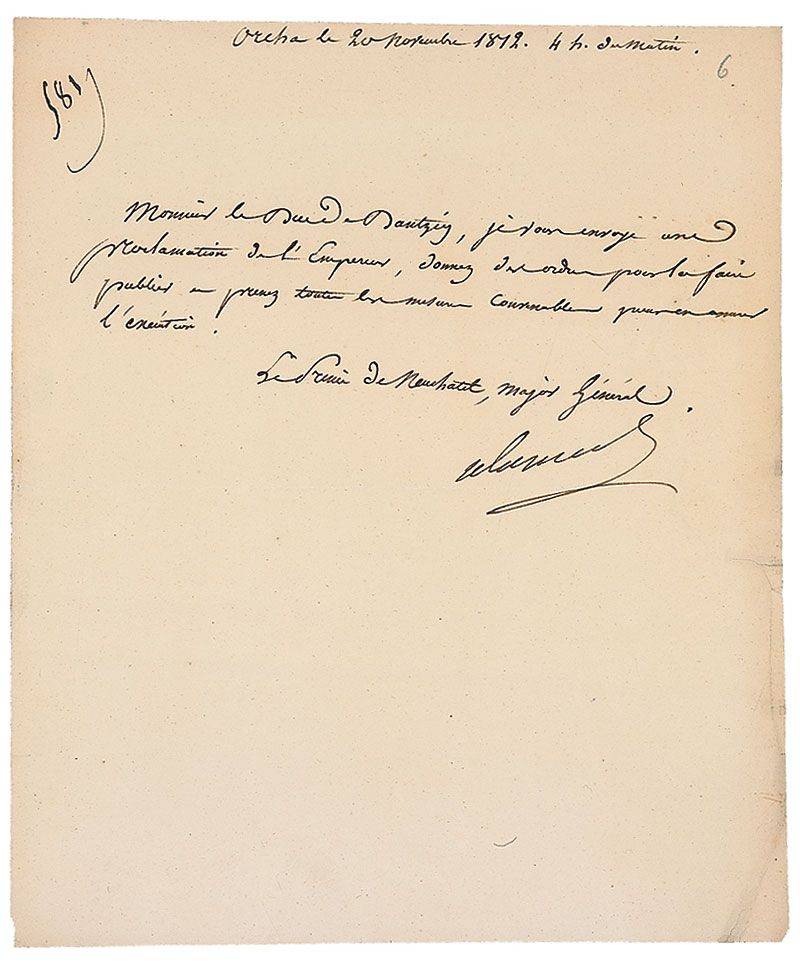 Orcha le 20 Novembre 1812. 4 h. du Matin.
6
581)
Monsieur le Duc de Dantzig, je vous envoye une
proclamation de l'Empereur, donnez des ordres pour la faire
publier et prenez toutes les mesures convenables pour en assurer
l'exécution.
Le Prince de Neuchatel, Major Général.